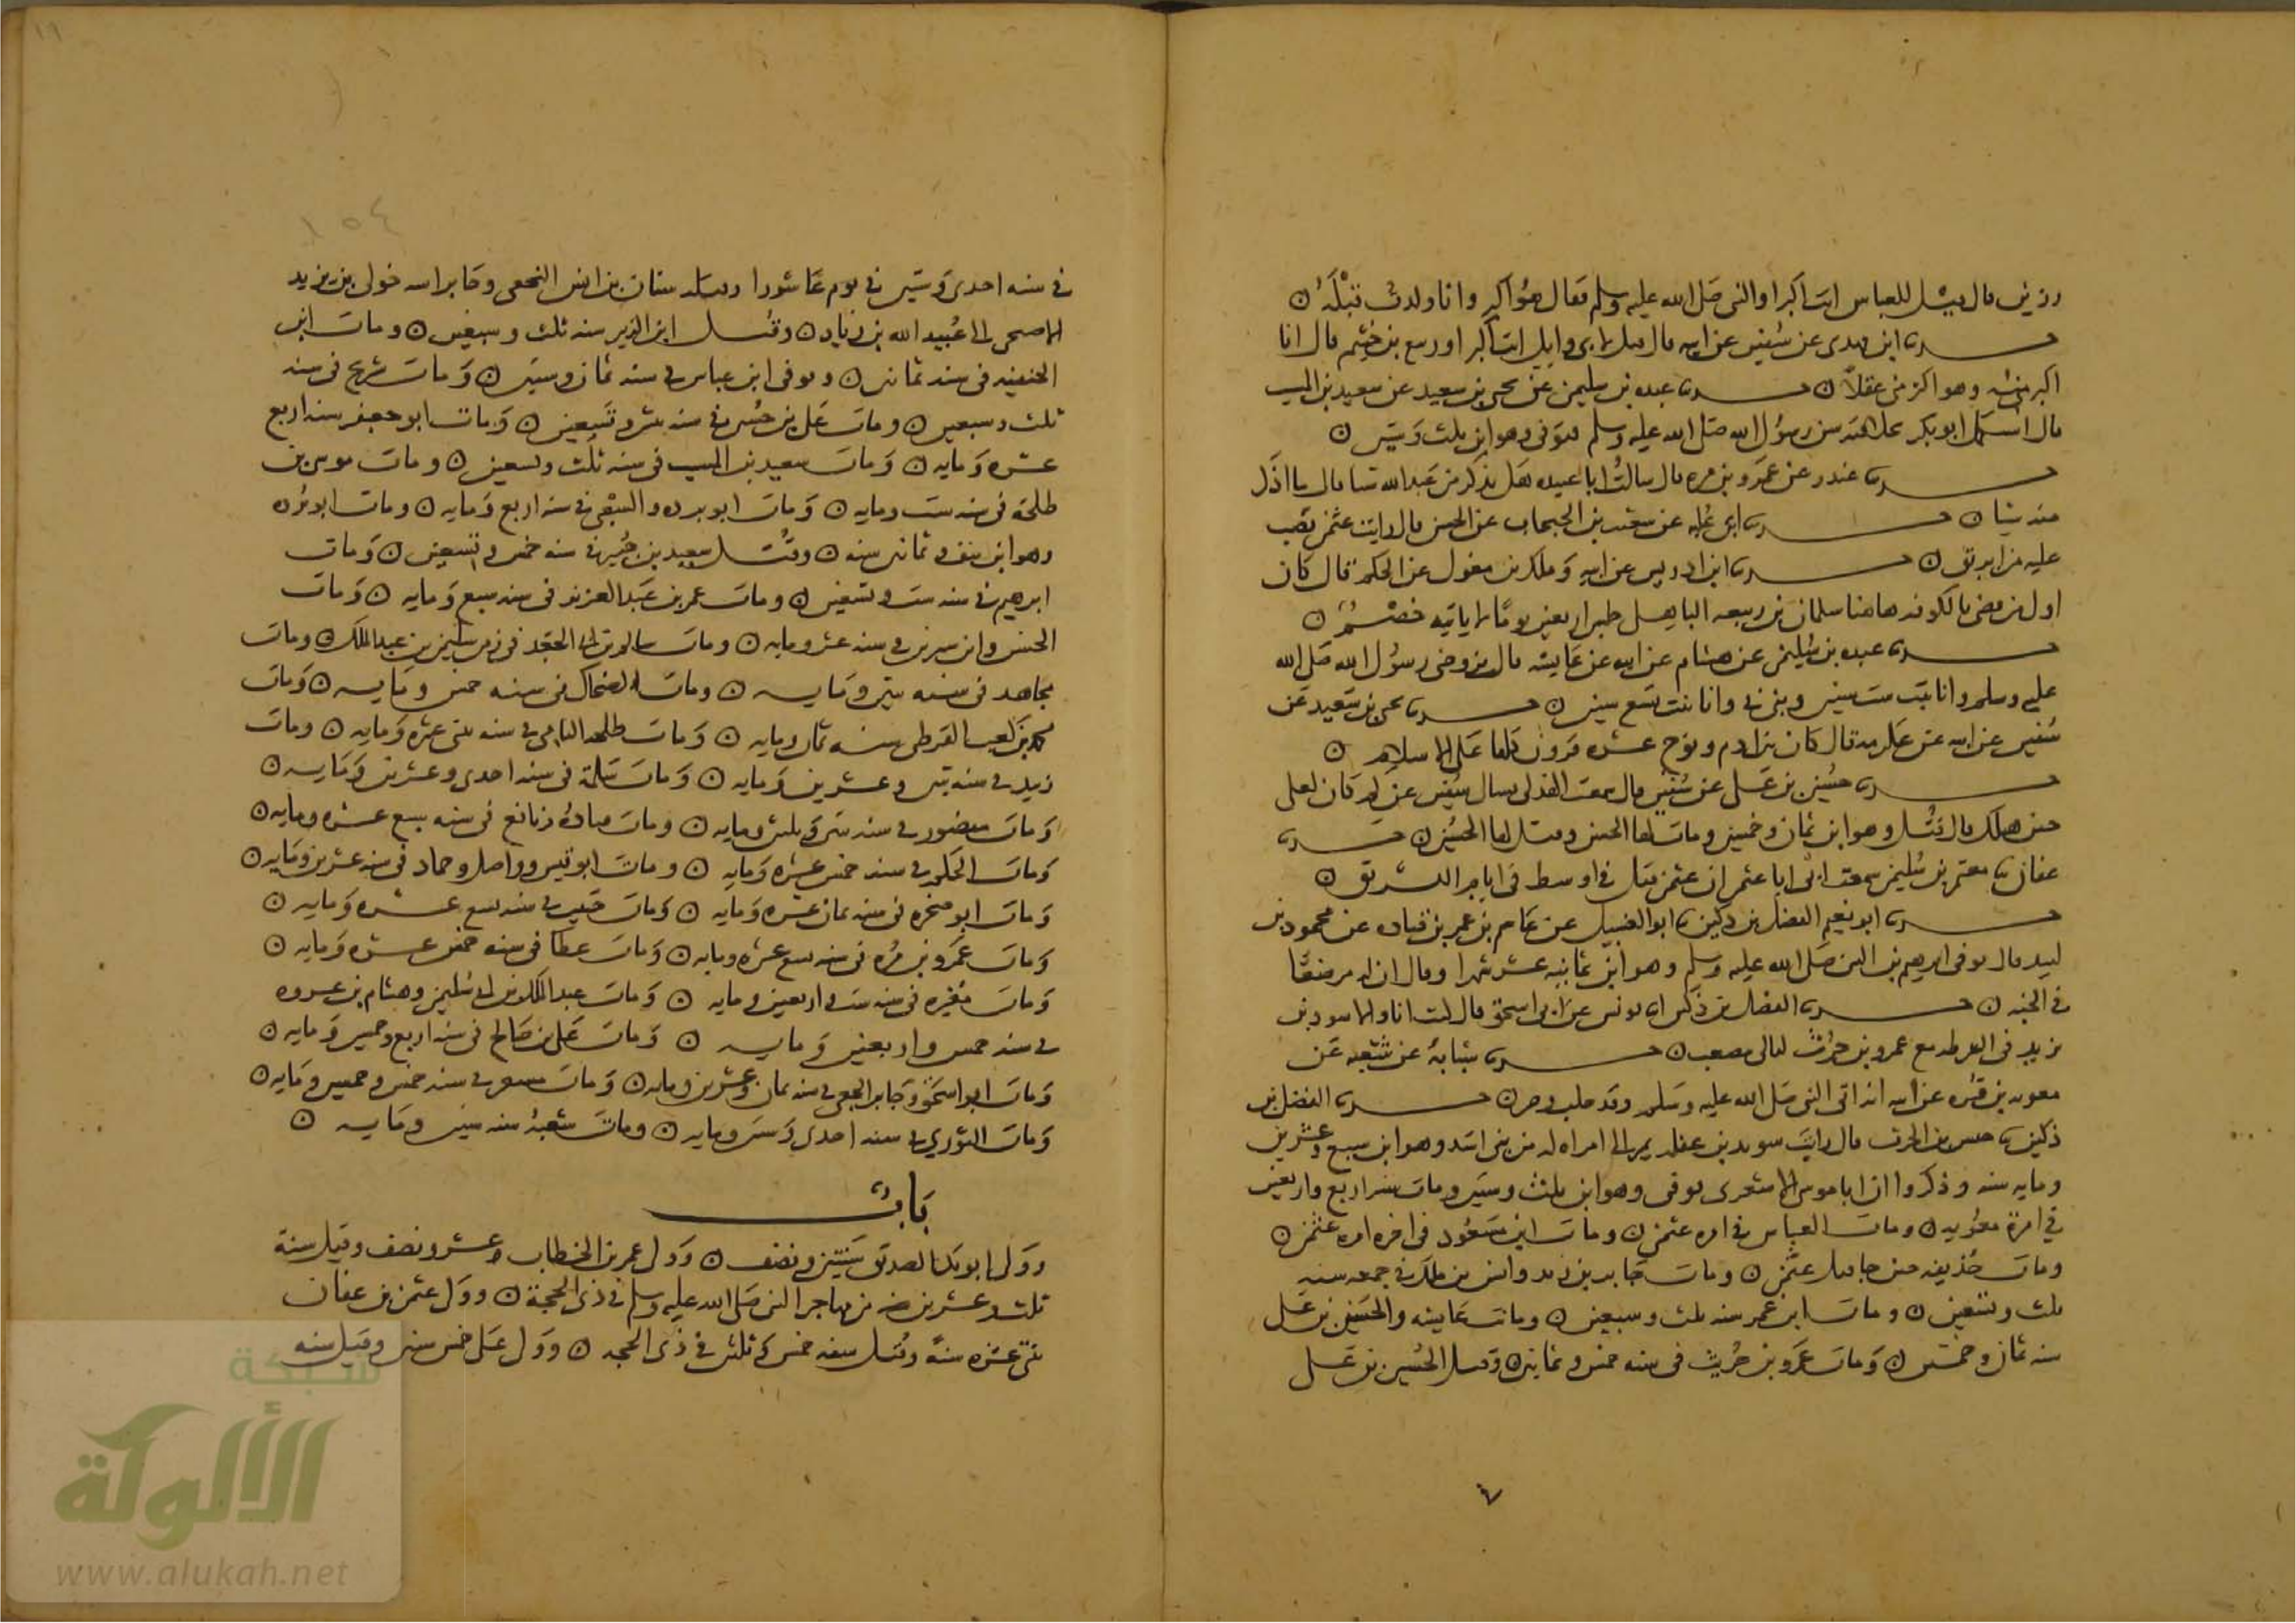 رزين قال قيل للعباس انت اكبر او النبي صلى الله عليه وسلم فقال هو اكبر وانا ولدت قبله
حدثنا ابن مهدي عن سفين عن ابيه قال قيل لابي وايل انت اكبر او ربيع بن خثيم قال انا
اكبر منه سنا وهو اكبر مني عقلا حدثنا عبده بن سليمن عن يحيى بن سعيد عن سعيد بن المسيب
قال استكمل ابو بكر بخلافته سن رسول الله صلى الله عليه وسلم فتوفي وهو ابن ثلث وستين
حدثنا غندر عن عمرو بن مره قال سالت ابا عبيده هل تذكر من عبد الله شيا قال ما اذكر
منه شيا حدثنا ابن عليه عن شعيب بن الحبحاب عن الحسن قال رايت عثمن يصب
عليه من ابريق حدثنا ابن ادريس عن ابيه وملك بن مغول عن الحكم قال كان
اول من قضى بالكوفه هاهنا سلمان بن ربيعه الباهلي جلس اربعين يوما لا ياتيه خصم
حدثنا عبده بن سليمن عن هشام عن ابيه عن عايشه قال تزوجني رسول الله صلى الله
عليه وسلم وانا بنت ست سنين وبنى بي وانا بنت تسع سنين حدثنا يحيى بن سعيد عن
سفين عن ابيه عن عكرمه قال كان بين ادم ونوح عشره قرون كلها على الاسلام
حدثنا حسين بن علي عن سفين قال سمعت الهذلي يسال جعفر عن كم كان لعلي
حين هلك قال قتل وهو ابن ثمان وخمسين ومات لها الحسن وقتل لها الحسين حدثنا
عفان نا معتمر بن سليمن سمعت ابي نا ابو عثمن ان عثمن قتل في اوسط في ايام التشريق
حدثنا ابو نعيم الفضل بن دكين نا ابن الغسيل عن عاصم بن عمر بن قتاده عن محمود بن
لبيد قال توفي ابرهيم بن النبي صلى الله عليه وسلم وهو ابن ثمانيه عشر شهرا وقال ان له مرضعا
في الجنه حدثنا الفضل بن دكين نا يونس عن ابي اسحق قال كنت انا والاسود بن
يزيد في الشرطه مع عمرو بن حريث ليالي مصعب حدثنا شبابة عن شعبه عن
معويه بن قره عن ابيه انه اتى النبي صلى الله عليه وسلم وقد حلب وصر حدثنا الفضل بن
دكين نا حنش بن الحرث قال رايت سويد بن غفله يمر الى امراه له من بني اسد وهو ابن سبع وعشرين
ومايه سنه وذكروا ان ابا موسى الاشعري توفي وهو ابن ثلث وستين ومات سنه اربع واربعين
في امرة معويه ومات العباس في امره عثمن ومات ابن مسعود في اخره امره عثمن
ومات حذيفه حين جا قتل عثمن ومات جابر بن زيد وانس بن ملك في جمعه سنه
ثلث وتسعين ومات ابن عمر سنه ثلث وسبعين وماتت عايشه والحسن بن علي
سنه ثمان وخمسين ومات عمرو بن حريث في سنه خمس وثمانين وقتل الحسين بن علي
١٥٤
في سنه احدى وستين في يوم عاشورا وقتله سنان بن انس النخعي وجا براسه خولي بن يزيد
الاصبحي الى عبيد الله بن زياد وقتل ابن الزبير سنه ثلث وسبعين ومات ابن
الحنفيه في سنه ثمانين وتوفي ابن عباس في سنه ثمان وستين ومات شريح في سنه
ثلث وسبعين ومات علي بن حسين في سنه ثنتين وتسعين ومات ابو جعفر سنه اربع
عشره ومايه ومات سعيد بن المسيب في سنه ثلث وتسعين ومات موسى بن
طلحة في سنه ست ومايه ومات ابو برده والشعبي في سنه اربع ومايه ومات ابو برده
وهو ابن نيف وثمانين سنه وقتل سعيد بن جبير في سنه خمس وتسعين ومات
ابرهيم في سنه ست وتسعين ومات عمر بن عبد العزيز في سنه سبع ومايه ومات
الحسن وابن سيرين في سنه عشر ومايه ومات سالم بن ابي الجعد في زمن سليمن بن عبد الملك ومات
مجاهد في سنه ثنتين ومايه ومات الضحاك في سنه خمس ومايه ومات
محمد بن كعب القرظي سنه ثمان ومايه ومات طلحه اليامي في سنه ثنتي عشره ومايه ومات
زبيد في سنه ثنتين وعشرين ومايه ومات سلمة في سنه احدى وعشرين ومايه
ومات منصور في سنه ثنتين وثلثين ومايه ومات قتادة ونافع في سنه سبع عشره ومايه
ومات الحكم في سنه خمس عشره ومايه ومات ابو قيس وواصل وحماد في سنه عشرين ومايه
ومات ابو صخره في سنه ثمان عشره ومايه ومات حبيب في سنه تسع عشره ومايه
ومات عمرو بن مره في سنه تسع عشره ومايه ومات عطا في سنه خمس عشره ومايه
ومات مغيره في سنه ست واربعين ومايه ومات عبد الملك بن ابي سليمن وهشام بن عروه
في سنه خمس واربعين ومايه ومات علي بن صالح في سنه اربع وخمسين ومايه
ومات ابو اسحق وجابر الجعفي في سنه ثمان وعشرين ومايه ومات مسعر في سنه خمس وخمسين ومايه
ومات الثوري في سنه احدى وستين ومايه ومات شعبة سنه ستين ومايه
باب
وولي ابو بكر الصديق سنتين ونصف وولي عمر بن الخطاب عشر ونصف وقتل سنة
ثلث وعشرين سنه من مهاجر النبي صلى الله عليه وسلم في ذي الحجة وولي عثمن بن عفان
ثنتي عشره سنة وقتل سنه خمس وثلثين في ذي الحجه وولي علي خمس سنين وقتل سنه
شبكة
الألوكة
www.alukah.net